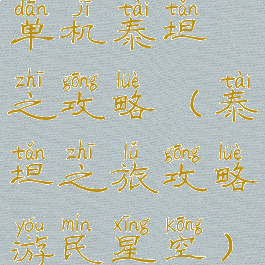 dān jī tài tǎn
单机泰坦
zhī gōng lüè tài
之攻略（泰
tǎn zhī lǚ gōng lüè
坦之旅攻略
yóu mín xīng kōng
游民星空）